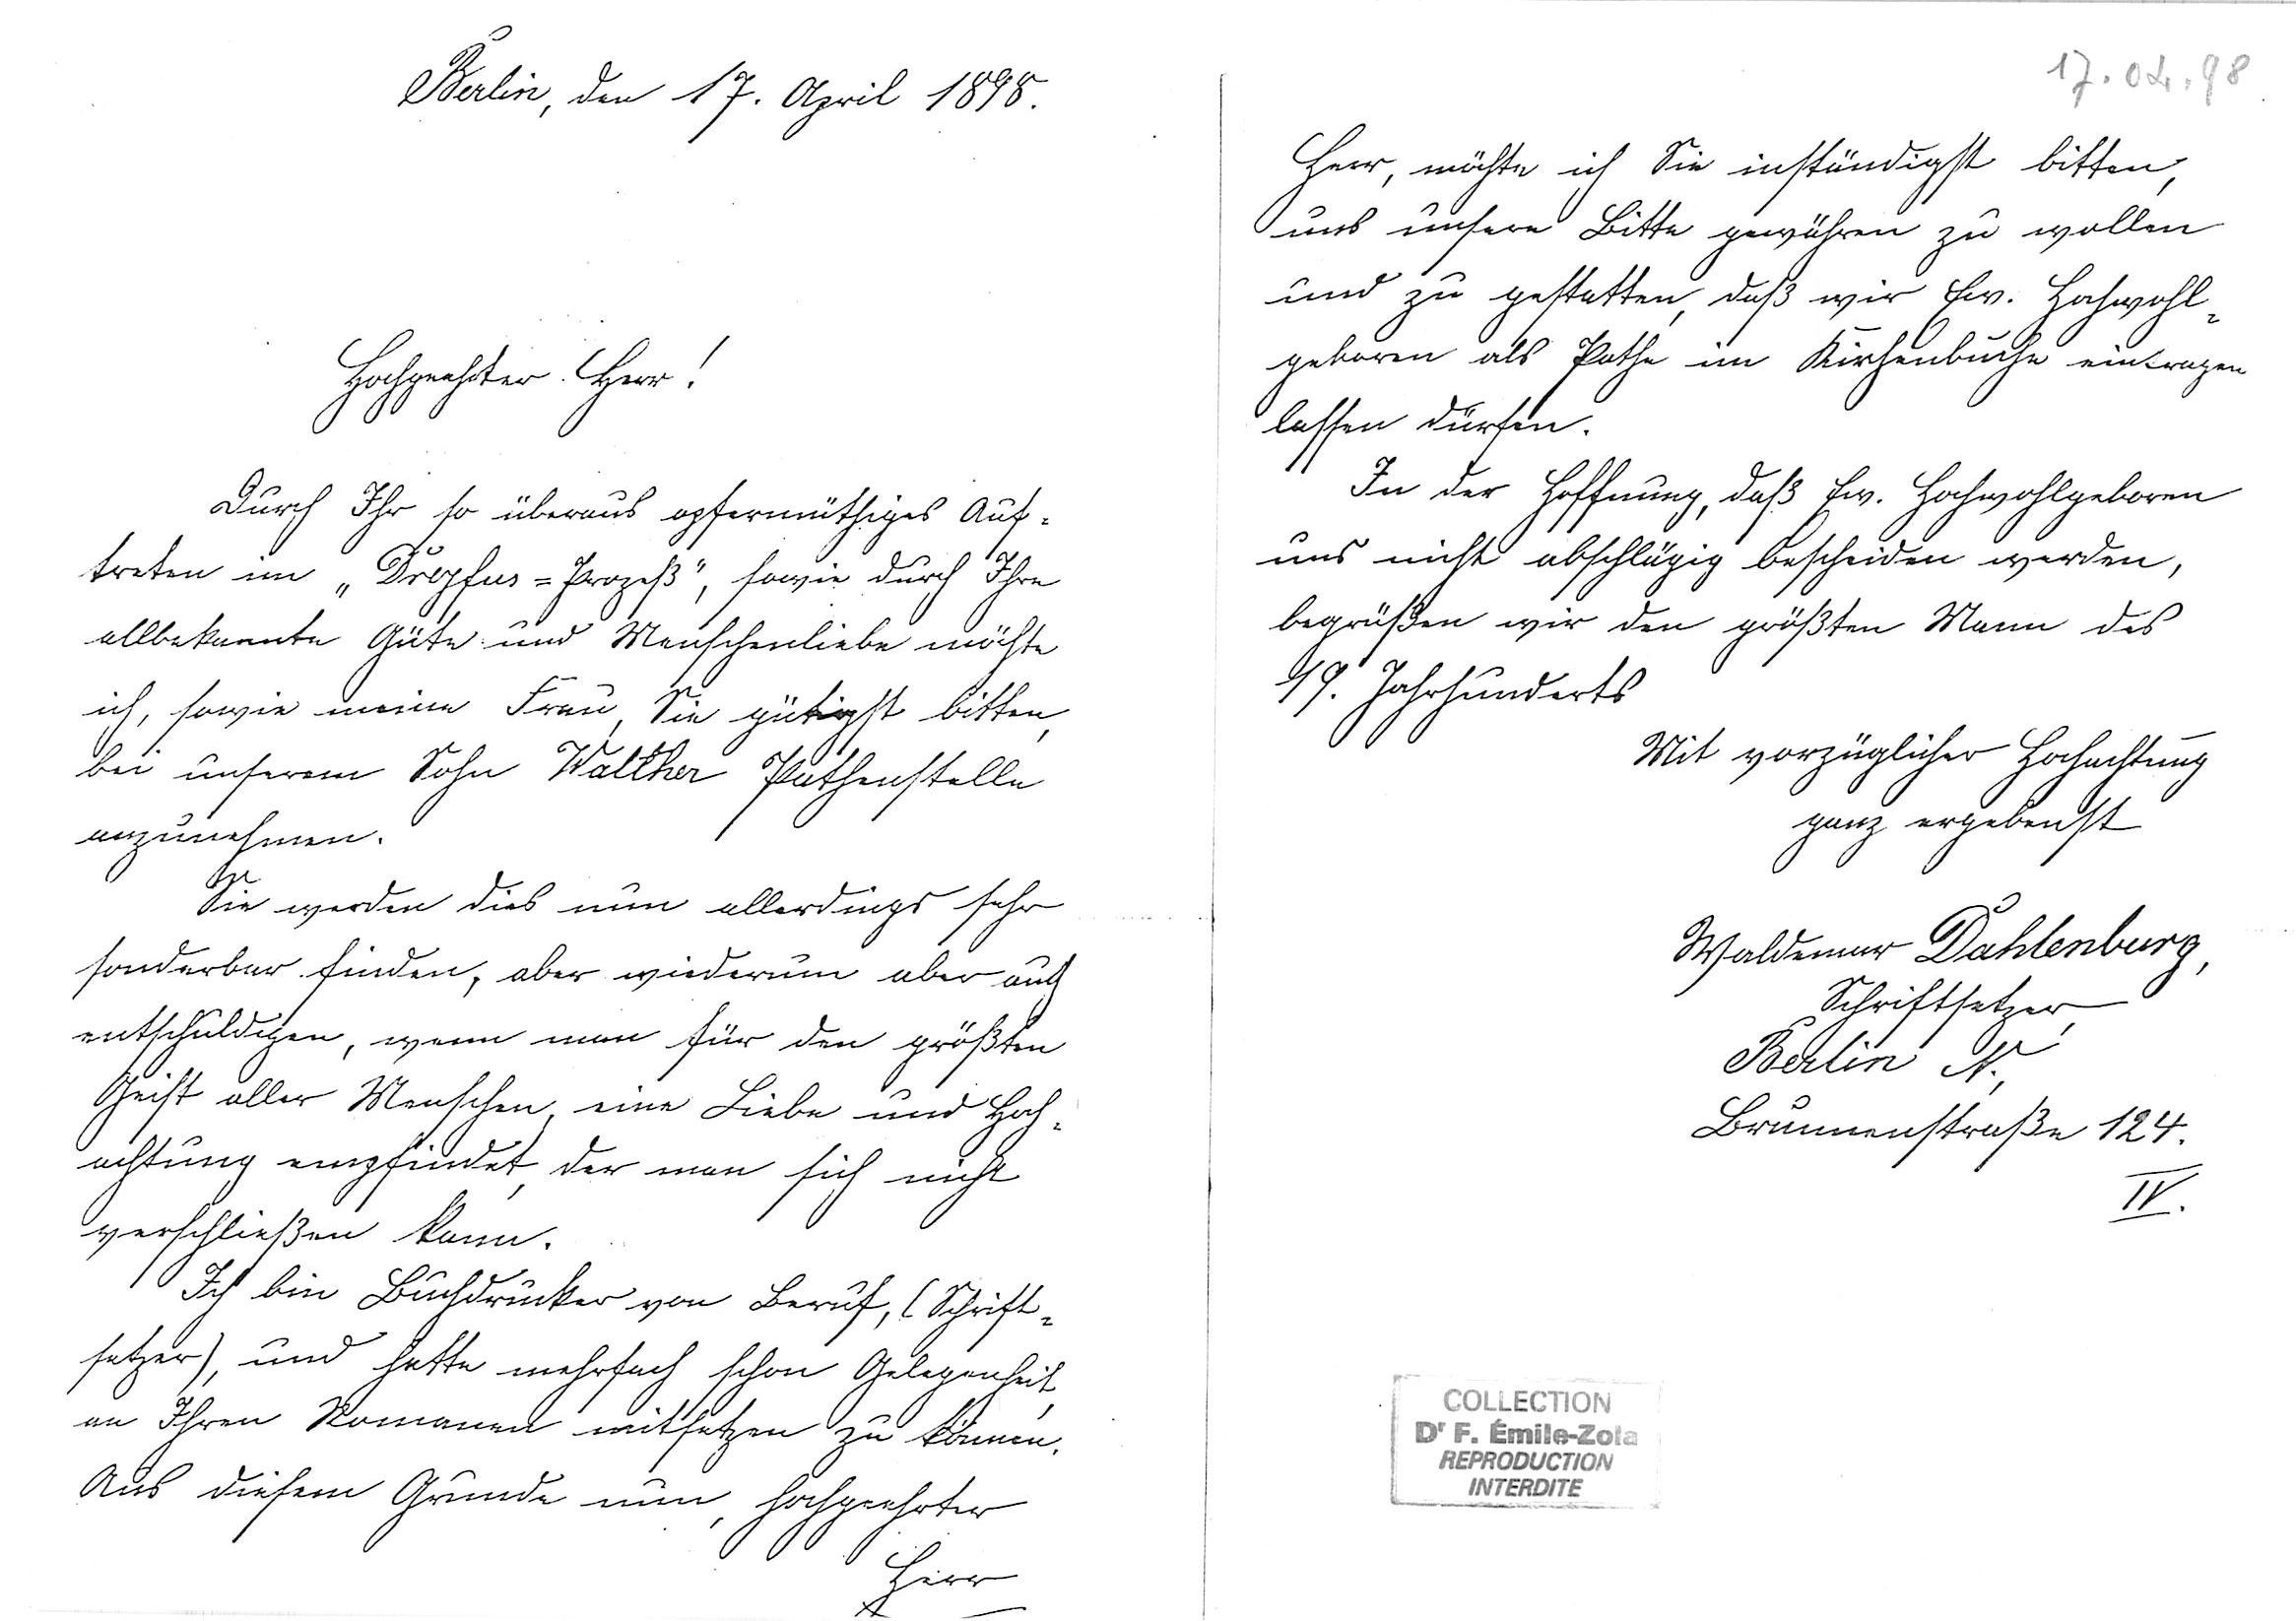 Berlin, den 17. April 1898.
Hochgeehrter Herr!
Durch Ihr so überaus opfermüthiges Auf-
treten im „Dreyfus=Prozeß", sowie durch Ihre
allbekannte Güte und Menschenliebe möchte
ich, sowie meine Frau, Sie gütigst bitten,
bei unserem Sohn Walther Pathenstelle
anzunehmen.
Sie werden dies nun allerdings sehr
sonderbar finden, aber wiederum aber auch
entschuldigen, wenn man für den größten
Geist aller Menschen, eine Liebe und Hoch-
achtung empfindet, der man sich nicht
verschließen kann.
Ich bin Buchdrucker von Beruf, (Schrift-
setzer), und hatte mehrfach schon Gelegenheit,
an Ihren Romanen mitsetzen zu können.
Aus diesem Grunde nun, hochgeehrter
Herr
17.04.98
Herr, möchte ich Sie inständigst bitten,
uns unsere Bitte gewähren zu wollen
und zu gestatten, daß wir Ew. Hochwohl-
geboren als Pathe im Kirchenbuche eintragen
lassen dürfen.
In der Hoffnung, daß Ew. Hochwohlgeboren
uns nicht abschlägig bescheiden werden,
begrüßen wir den größten Mann des
19. Jahrhunderts
Mit vorzüglicher Hochachtung
ganz ergebenst
Waldemar Dahlenburg,
Schriftsetzer,
Berlin N.,
Brunnenstraße 124.
IV.
COLLECTION
Dr F. Émile-Zola
REPRODUCTION
INTERDITE